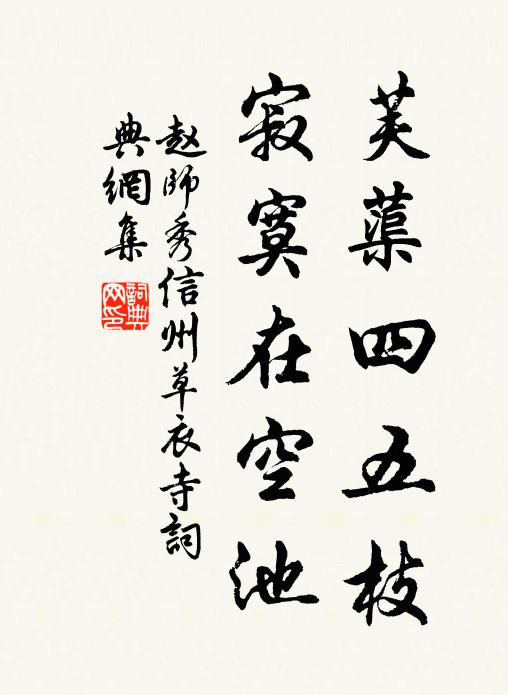 芙蕖四五枝
寂寞在空池
赵師秀信州草衣寺詞
典網集
詞典网印